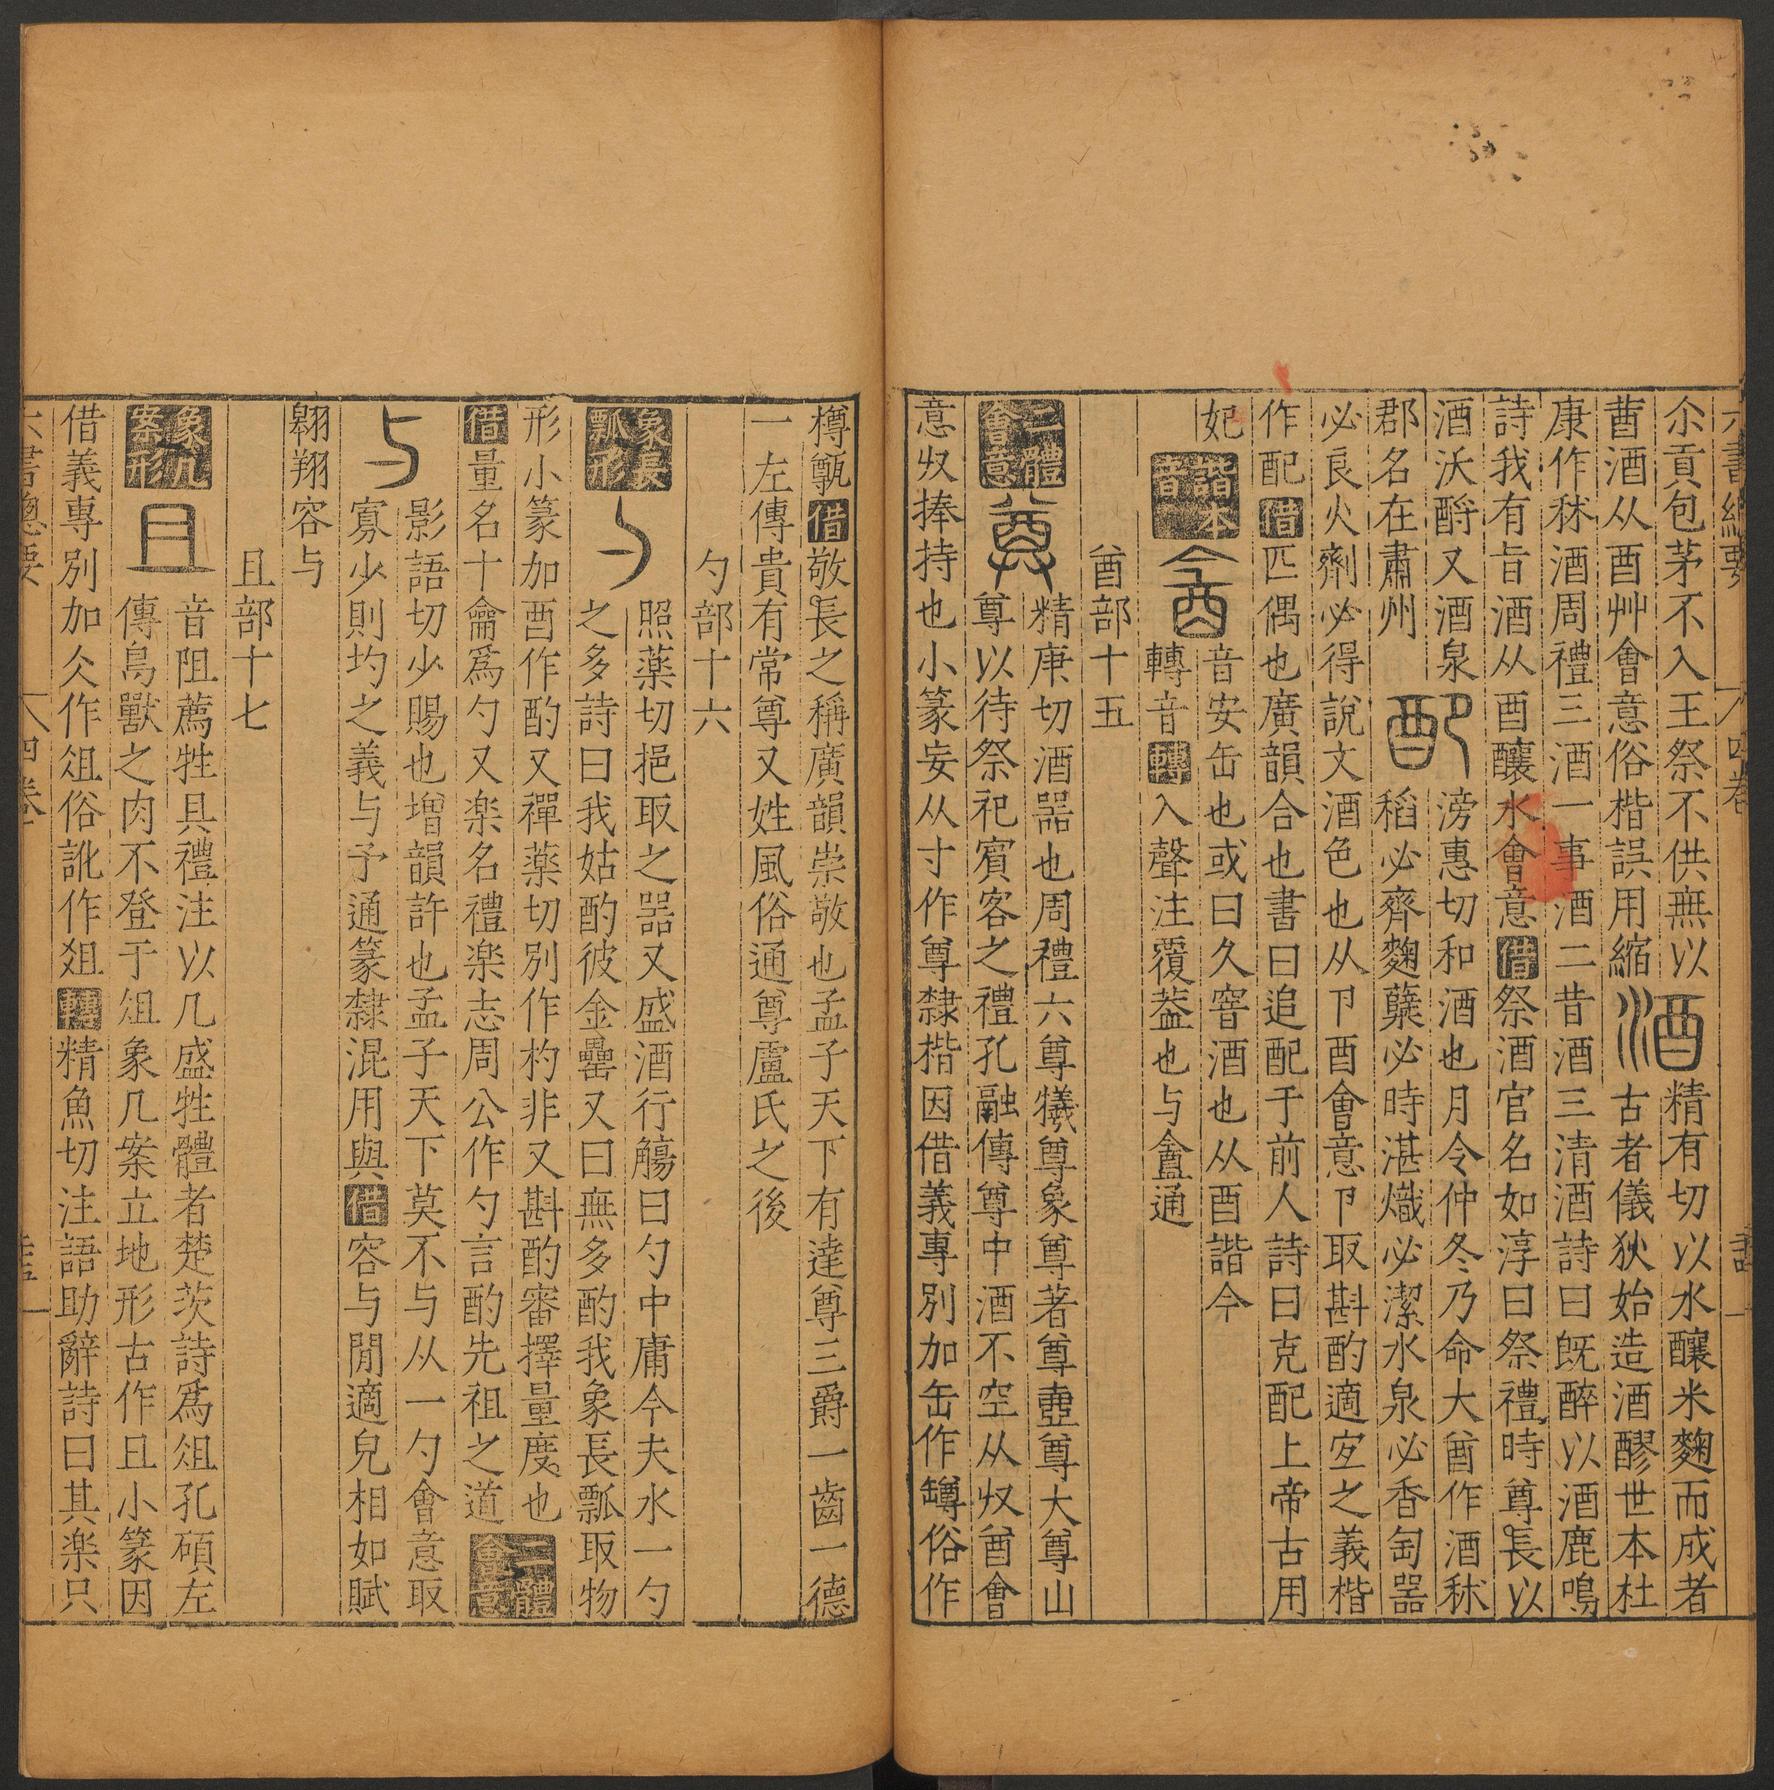 尒貢包茅不入王祭不供無以酒精有切以水釀米麴而成者
莤酒从酉艸會意俗楷誤用縮古者儀狄始造酒醪世本杜
康作秫酒周禮三酒一事酒二昔酒三清酒詩曰旣醉以酒鹿鳴
詩我有旨酒从酉釀水會意借祭酒官名如淳曰祭禮時尊長以
酒沃酹又酒泉
郡名在肅州
配滂惠切和酒也月令仲冬乃命大酋作酒秫
稻必齊麴蘖必時湛熾必潔水泉必香匋器
必良火劑必得說文酒色也从卩酉會意卩取斟酌適宐之義楷
作配借匹偶也廣韻合也書曰追配于前人詩曰克配上帝古用
妃
諧本音
酓音安缶也或曰久窨酒也从酉諧今
轉音轉入聲注覆葢也与盦通
酋部十五
二體會意
尊精庚切酒器也周禮六尊犧尊象尊著尊壺尊大尊山
尊以待祭祀賓客之禮孔融傳尊中酒不空从収酋會
意収捧持也小篆妄从寸作尊隸楷因借義專別加缶作罇俗作
樽甎借敬長之稱廣韻崇敬也孟子天下有達尊三爵一齒一德
一左傳貴有常尊又姓風俗通尊盧氏之後
勺部十六
象長瓢形
勺照藥切挹取之器又盛酒行觴曰勺中庸今夫水一勺
之多詩曰我姑酌彼金罍又曰無多酌我象長瓢取物
形小篆加酉作酌又禪藥切別作杓非又斟酌審擇量度也
借量名十龠爲勺又楽名禮楽志周公作勺言酌先祖之道
二體會意
与影語切少賜也增韻許也孟子天下莫不与从一勺會意取
寡少則均之義与予通篆隸混用與借容与閒適皃相如賦
翱翔容与
且部十七
象几案形
且音阻薦牲具禮注以几盛牲體者楚茨詩爲俎孔碩左
傳鳥獸之肉不登于俎象几案立地形古作且小篆因
借義專別加仌作俎俗訛作爼轉精魚切注語助辭詩曰其楽只
六書總要
四卷